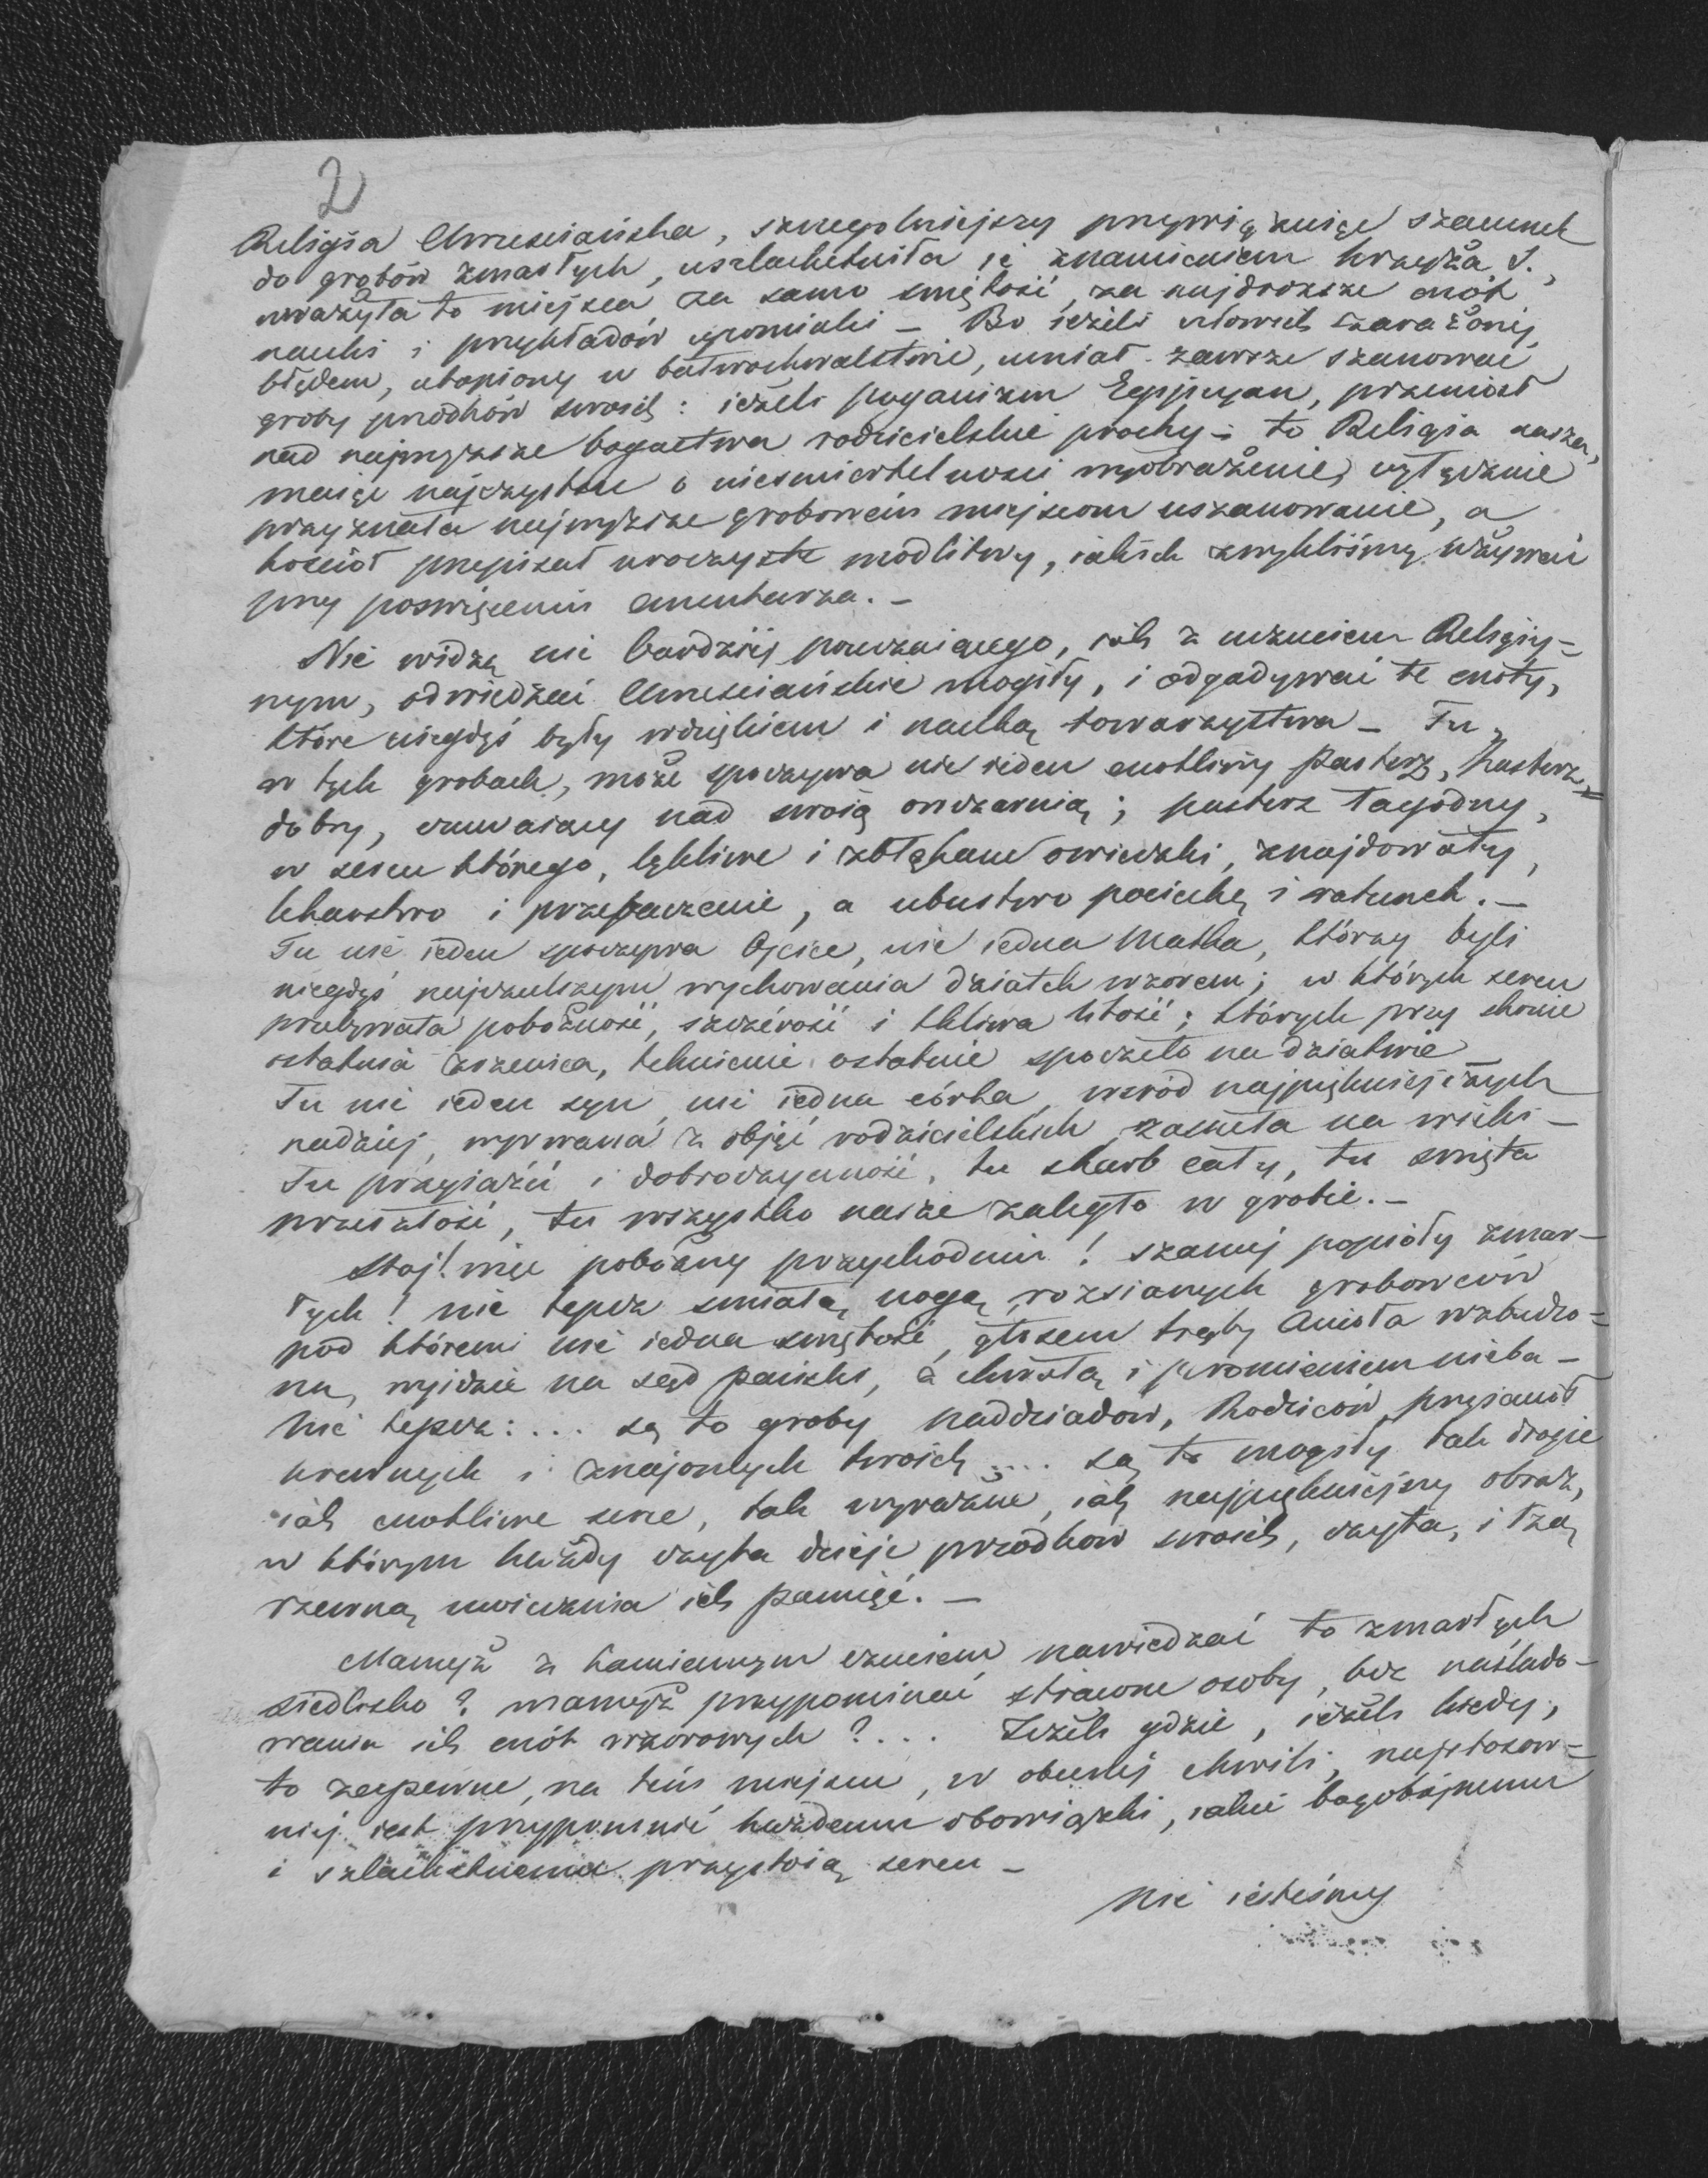 2
Religia Chrześciańska, szczegolniejszy przywiązuiąc szacunek
do grobów zmarłych, uszlachetniła ie znamieniem krzyża S.,
uważyła to miejsca za samo świętość, za najdroższe cnót
nauki i przykładów pomniki – Bo ieżeli człowiek zarażony
błędem, utopiony w bałwochwalstwie, umiał zawsze szanować
groby przodków swoich: ieżeli poganizm Egipcyan, przeniosł
nad najwyższe bogactwa rodzicielskie prochy – to Religia nasza,
maiąc najczystsze o niesmiertelnosci wyobrażenie, wyłącznie
przyznała najwyższe grobowém miejscom uszanowanie, a
kościoł przepisał uroczyste modlitwy, iakich zwykliśmy używać
przy poswięceniu cmentarza. –
Nie widzę nic bardziéj pouczaiącego, iak z uczuciem Religiy=
nym, odwiedzać Chrześciańskie mogiły, i odgadywać te cnoty,
które niegdyś były wdziękiem i nauką towarzystwa – Tu
w tych grobach, może spoczywa nie ieden cnotliwy Pasterz, Pasterz
dobry, czuwaiący nad swoią owczarnią; pasterz łagodny,
w sercu którego, lękliwe i zbłąkane owieczki, znajdowały,
lekarstwo i przebaczenie, a ubustwo pociechę i ratunek. –
Tu nie ieden spoczywa Ojciec, nie iedna Matka, którzy byli
niegdyś najczulszym wychowania dziatek wzorem; w których sercu
przebywała pobożność, szczérość i tkliwa litość; których przy skonie
ostatnia źrzenica, tchnienie ostatnie spoczęło na dziatwie –
Tu nie ieden syn, nie iedna córka, wsród najpiękniejszych
nadziej, wyrwana z objęć rodzicielskich zasnęła na wieki –
Tu przyiaźń i dobroczynność, tu skarb cały, tu święta
przeszłość, tu wszystko nasze zakryto w grobie. –
Stój! więc pobożny przychodniu! szanuj popioły zmar–
łych! nie depcz smiałą nogą, rozsianych grobowców
pod któremi nie iedna świętość, głosem trąby Anioła wzbudzo=
na, wyidzie na sąd pański, z chwałą i promieniem nieba –
Nie depcz: . . . są to groby naddziadów, Rodziców, przyjaciół
krewnych i znajomych twoich . . . . są to mogiły tak drogie
iak cnotliwe serce, tak wyraźne, iak najpiękniejszy obraz,
w którym każdy czyta dzieje przodków swoich, czyta, i łzą
rzewną uwiecznia ich pamięć. –
Mamyż z kamiennym czuciem nawiedzać to zmarłych
siedlisko? mamyż przypominać strawne osoby, bez naślado–
wania ich cnót wzorowych? . . . Ieżeli gdzie, ieżeli kiedy,
to zapewne, na tém miejscu, w obecnéj chwili, najstosow=
niéj iest przypomnić każdemu obowiązki, iakie bogobójnemu
i szlachetnemu przystoią sercu –
Nie iesteśmy